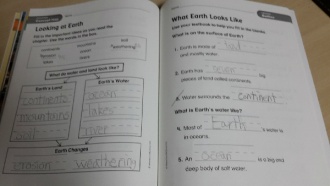 Looking at Earth
Fill in the important ideas as you read the
chapter. Use the words in the box.
continents
mountains
ocean
soil
weathering
erosion
lakes
river
What do water and land look like?
Earth's Land
Earth's Water
continents
ocean
mountains
lakes
soil
river
Earth Changes
erosion
weathering
What Earth Looks Like
Use your textbook to help you fill in the blanks.
What is on the surface of Earth?
1. Earth is made of land
and mostly water.
2. Earth has seven big
pieces of land called continents.
3. Water surrounds the continent
What is Earth's water like?
4. Most of Earth's water is
in oceans.
5. An ocean is a big and
deep body of salt water.